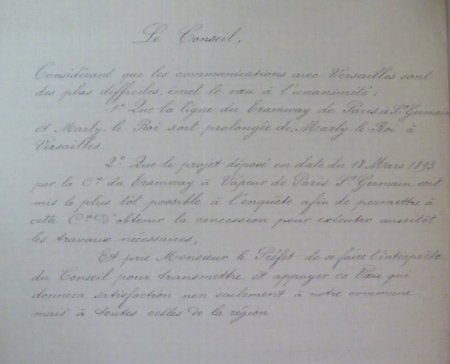 Le Conseil,
Considérant que les communications avec Versailles sont
des plus difficiles, émet le vœu à l'unanimité;
1° Que la ligne du Tramway de Paris à St Germain
et Marly le Roi soit prolongée de Marly le Roi à
Versailles.
2° Que le projet déposé en date du 18 Mars 1893
par la Cie du Tramway à Vapeur de Paris St Germain soit
mis le plus tôt possible à l'enquête afin de permettre à
cette Cie d'obtenir la concession pour exécuter aussitôt
les travaux nécessaires,
Et prie Monsieur le Préfet de se faire l'interprète
du Conseil pour transmettre et appuyer ce Vœu qui
donnera satisfaction non seulement à notre commune
mais à toutes celles de la région